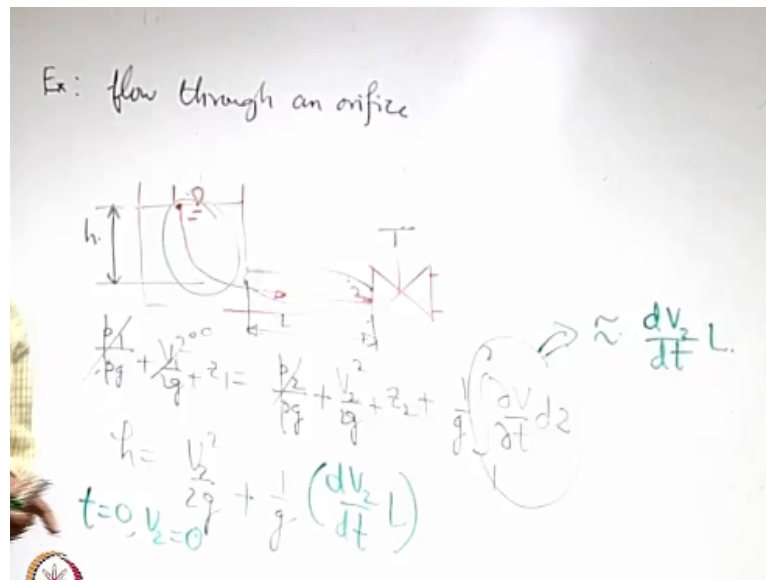 Ex: flow through an orifice
h.
1
2
L
p₁/ρg + V₁²/2g + z₁ = p₂/ρg + V₂²/2g + z₂ + 1/g ∫₁² ∂V/∂t ds
≈ dV₂/dt L.
h = V₂²/2g + 1/g (dV₂/dt L)
t=0, V₂=0